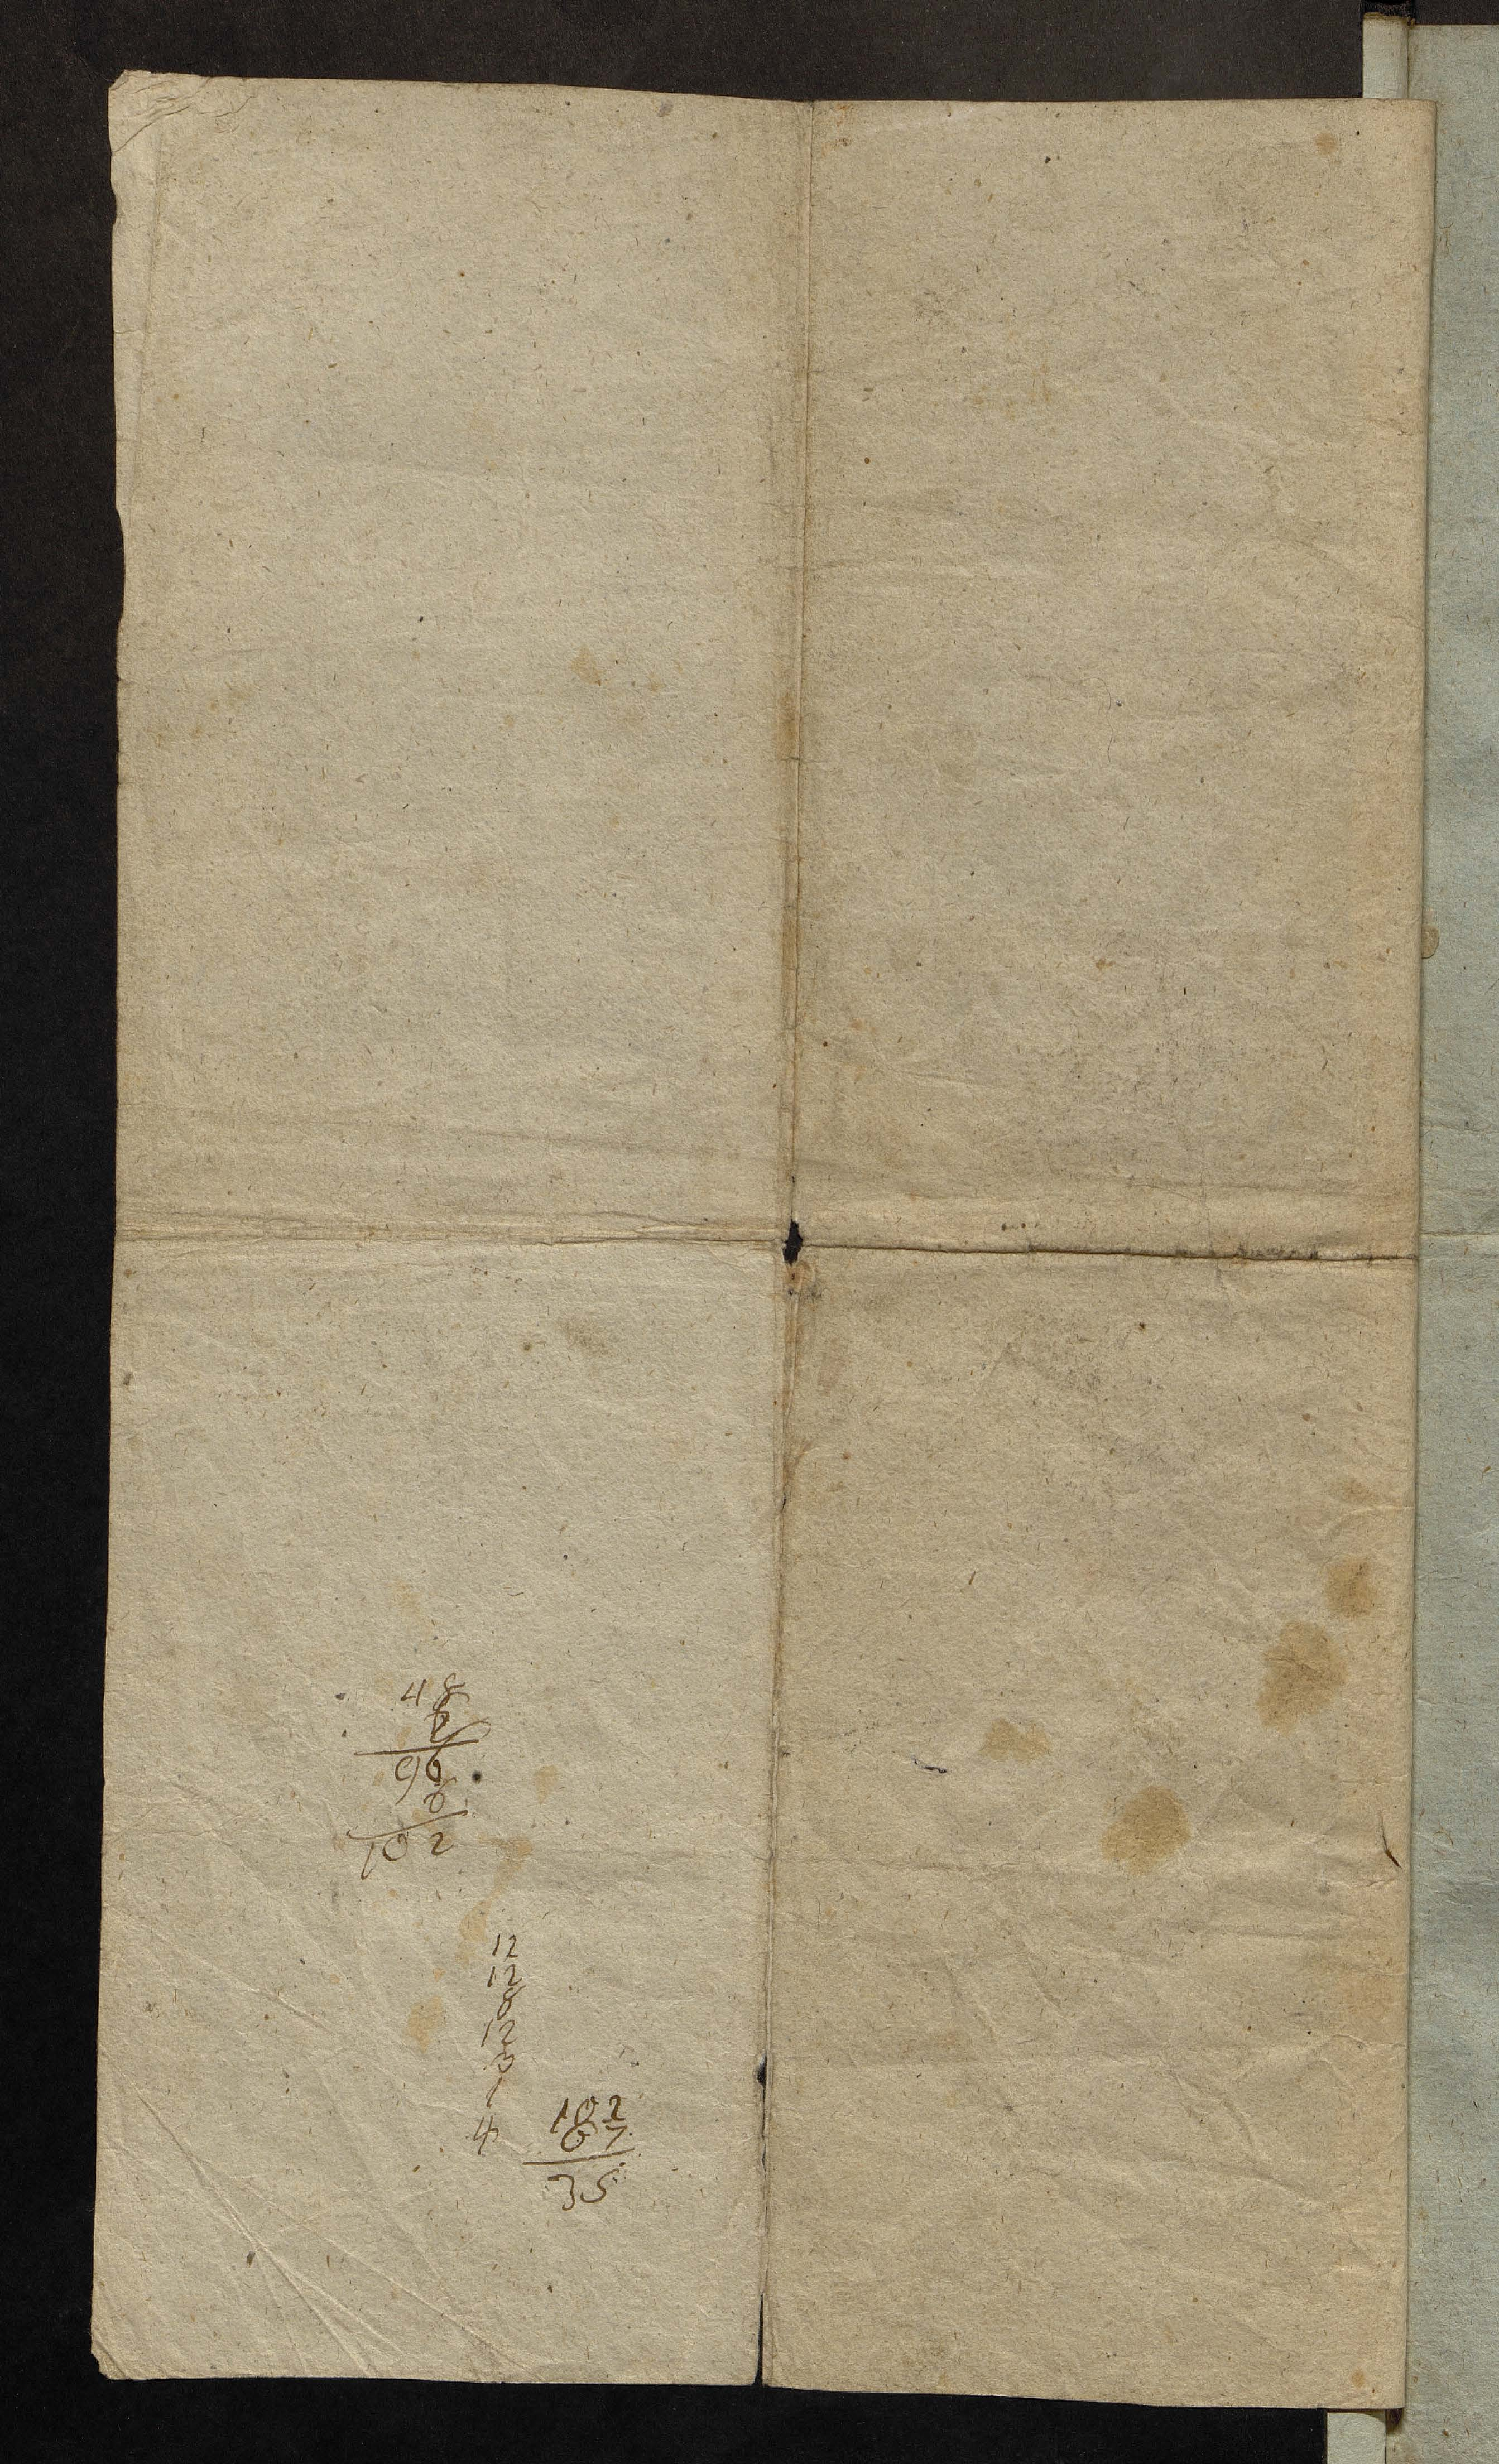 48
2
96
6
102
12
12
8
12
3
1
4
102
67
35